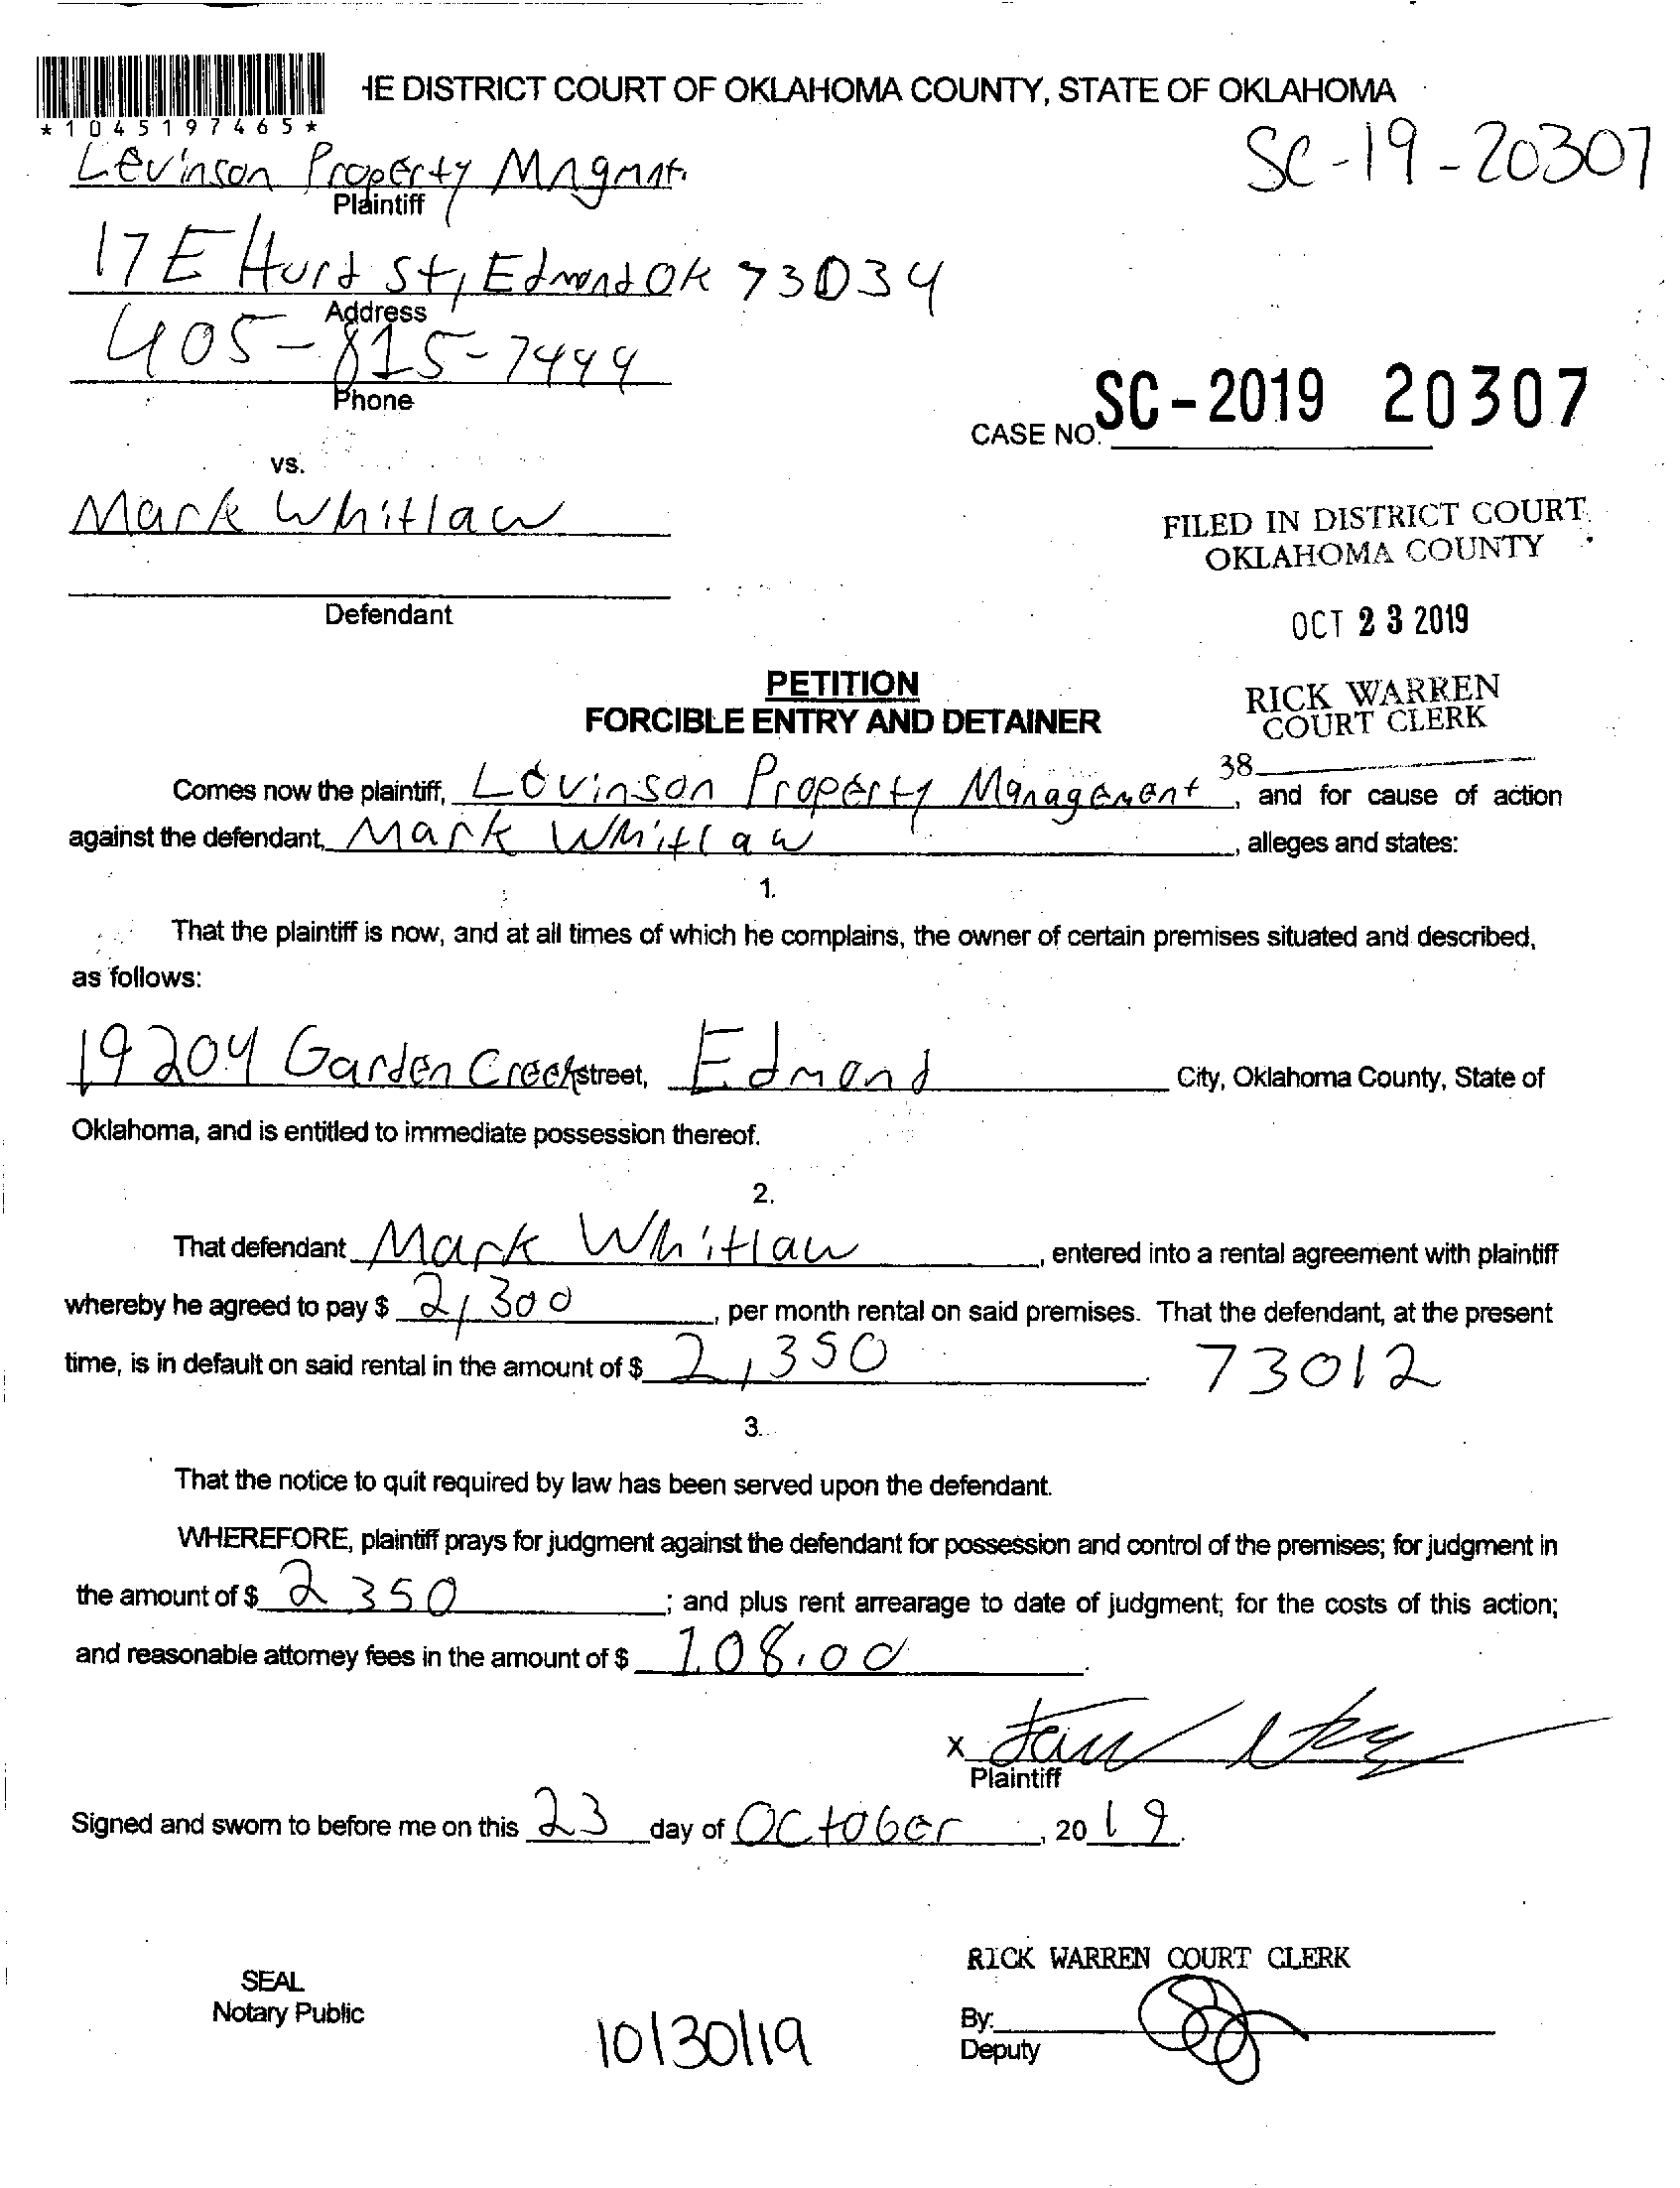 IE DISTRICT COURT OF OKLAHOMA COUNTY, STATE OF OKLAHOMA
*1045197465*
SC-19-20307
Levinson Property Mngmnt.
Plaintiff
17 E Hurd St, Edmond OK 73034
Address
405-815-7444
Phone
CASE NO. SC-2019 20307
vs.
Mark Whitlaw
FILED IN DISTRICT COURT
OKLAHOMA COUNTY
Defendant
OCT 23 2019
PETITION
FORCIBLE ENTRY AND DETAINER
RICK WARREN
COURT CLERK
38
Comes now the plaintiff, Levinson Property Management, and for cause of action
against the defendant, Mark Whitlaw, alleges and states:
1.
That the plaintiff is now, and at all times of which he complains, the owner of certain premises situated and described,
as follows:
19204 Garden Creek street, Edmond City, Oklahoma County, State of
Oklahoma, and is entitled to immediate possession thereof.
2.
That defendant Mark Whitlaw, entered into a rental agreement with plaintiff
whereby he agreed to pay $ 2,300, per month rental on said premises. That the defendant, at the present
time, is in default on said rental in the amount of $ 2,350. 73012
3.
That the notice to quit required by law has been served upon the defendant.
WHEREFORE, plaintiff prays for judgment against the defendant for possession and control of the premises; for judgment in
the amount of $ 2350; and plus rent arrearage to date of judgment; for the costs of this action;
and reasonable attorney fees in the amount of $ 108.00.
X
Plaintiff
Signed and sworn to before me on this 23 day of October, 2019.
RICK WARREN COURT CLERK
SEAL
Notary Public
10/30/19
By:
Deputy